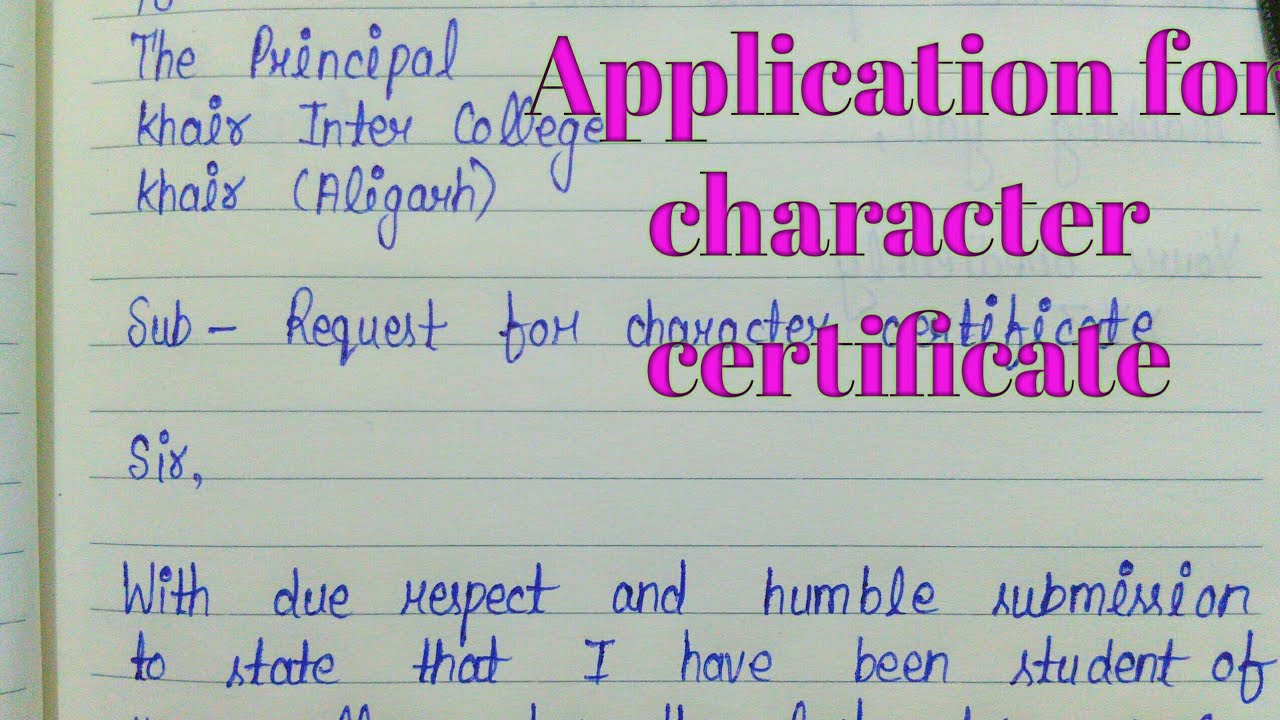 To
The Principal
Khair Inter College
Khair (Aligarh)
Application for
character
certificate
Sub - Request for character certificate
Sir,
With due respect and humble submission
to state that I have been student of